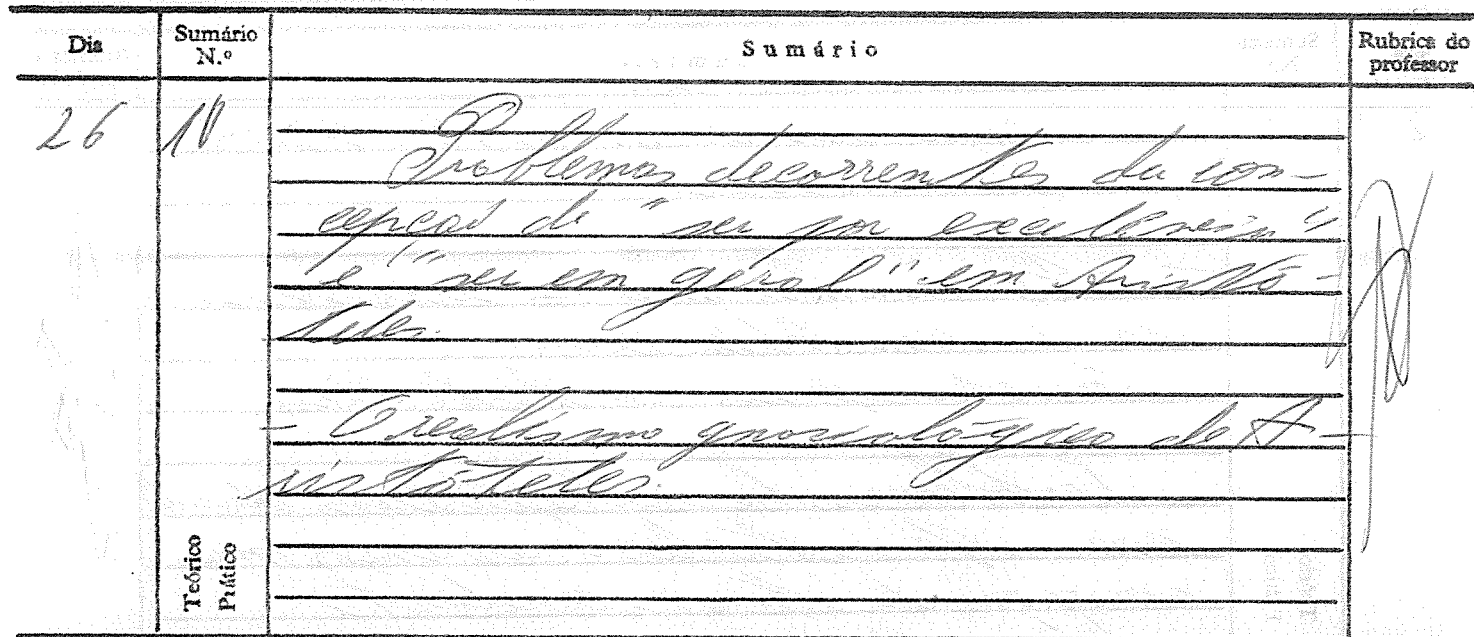 Dia Sumário N.º Sumário Rubrica do professor
26
Problemas decorrentes da con-
cepção de "ser por excelência"
e "ser em geral" em Aristó-
teles.
- O realismo gnosiológico de A-
ristóteles.
Teórico
Prático